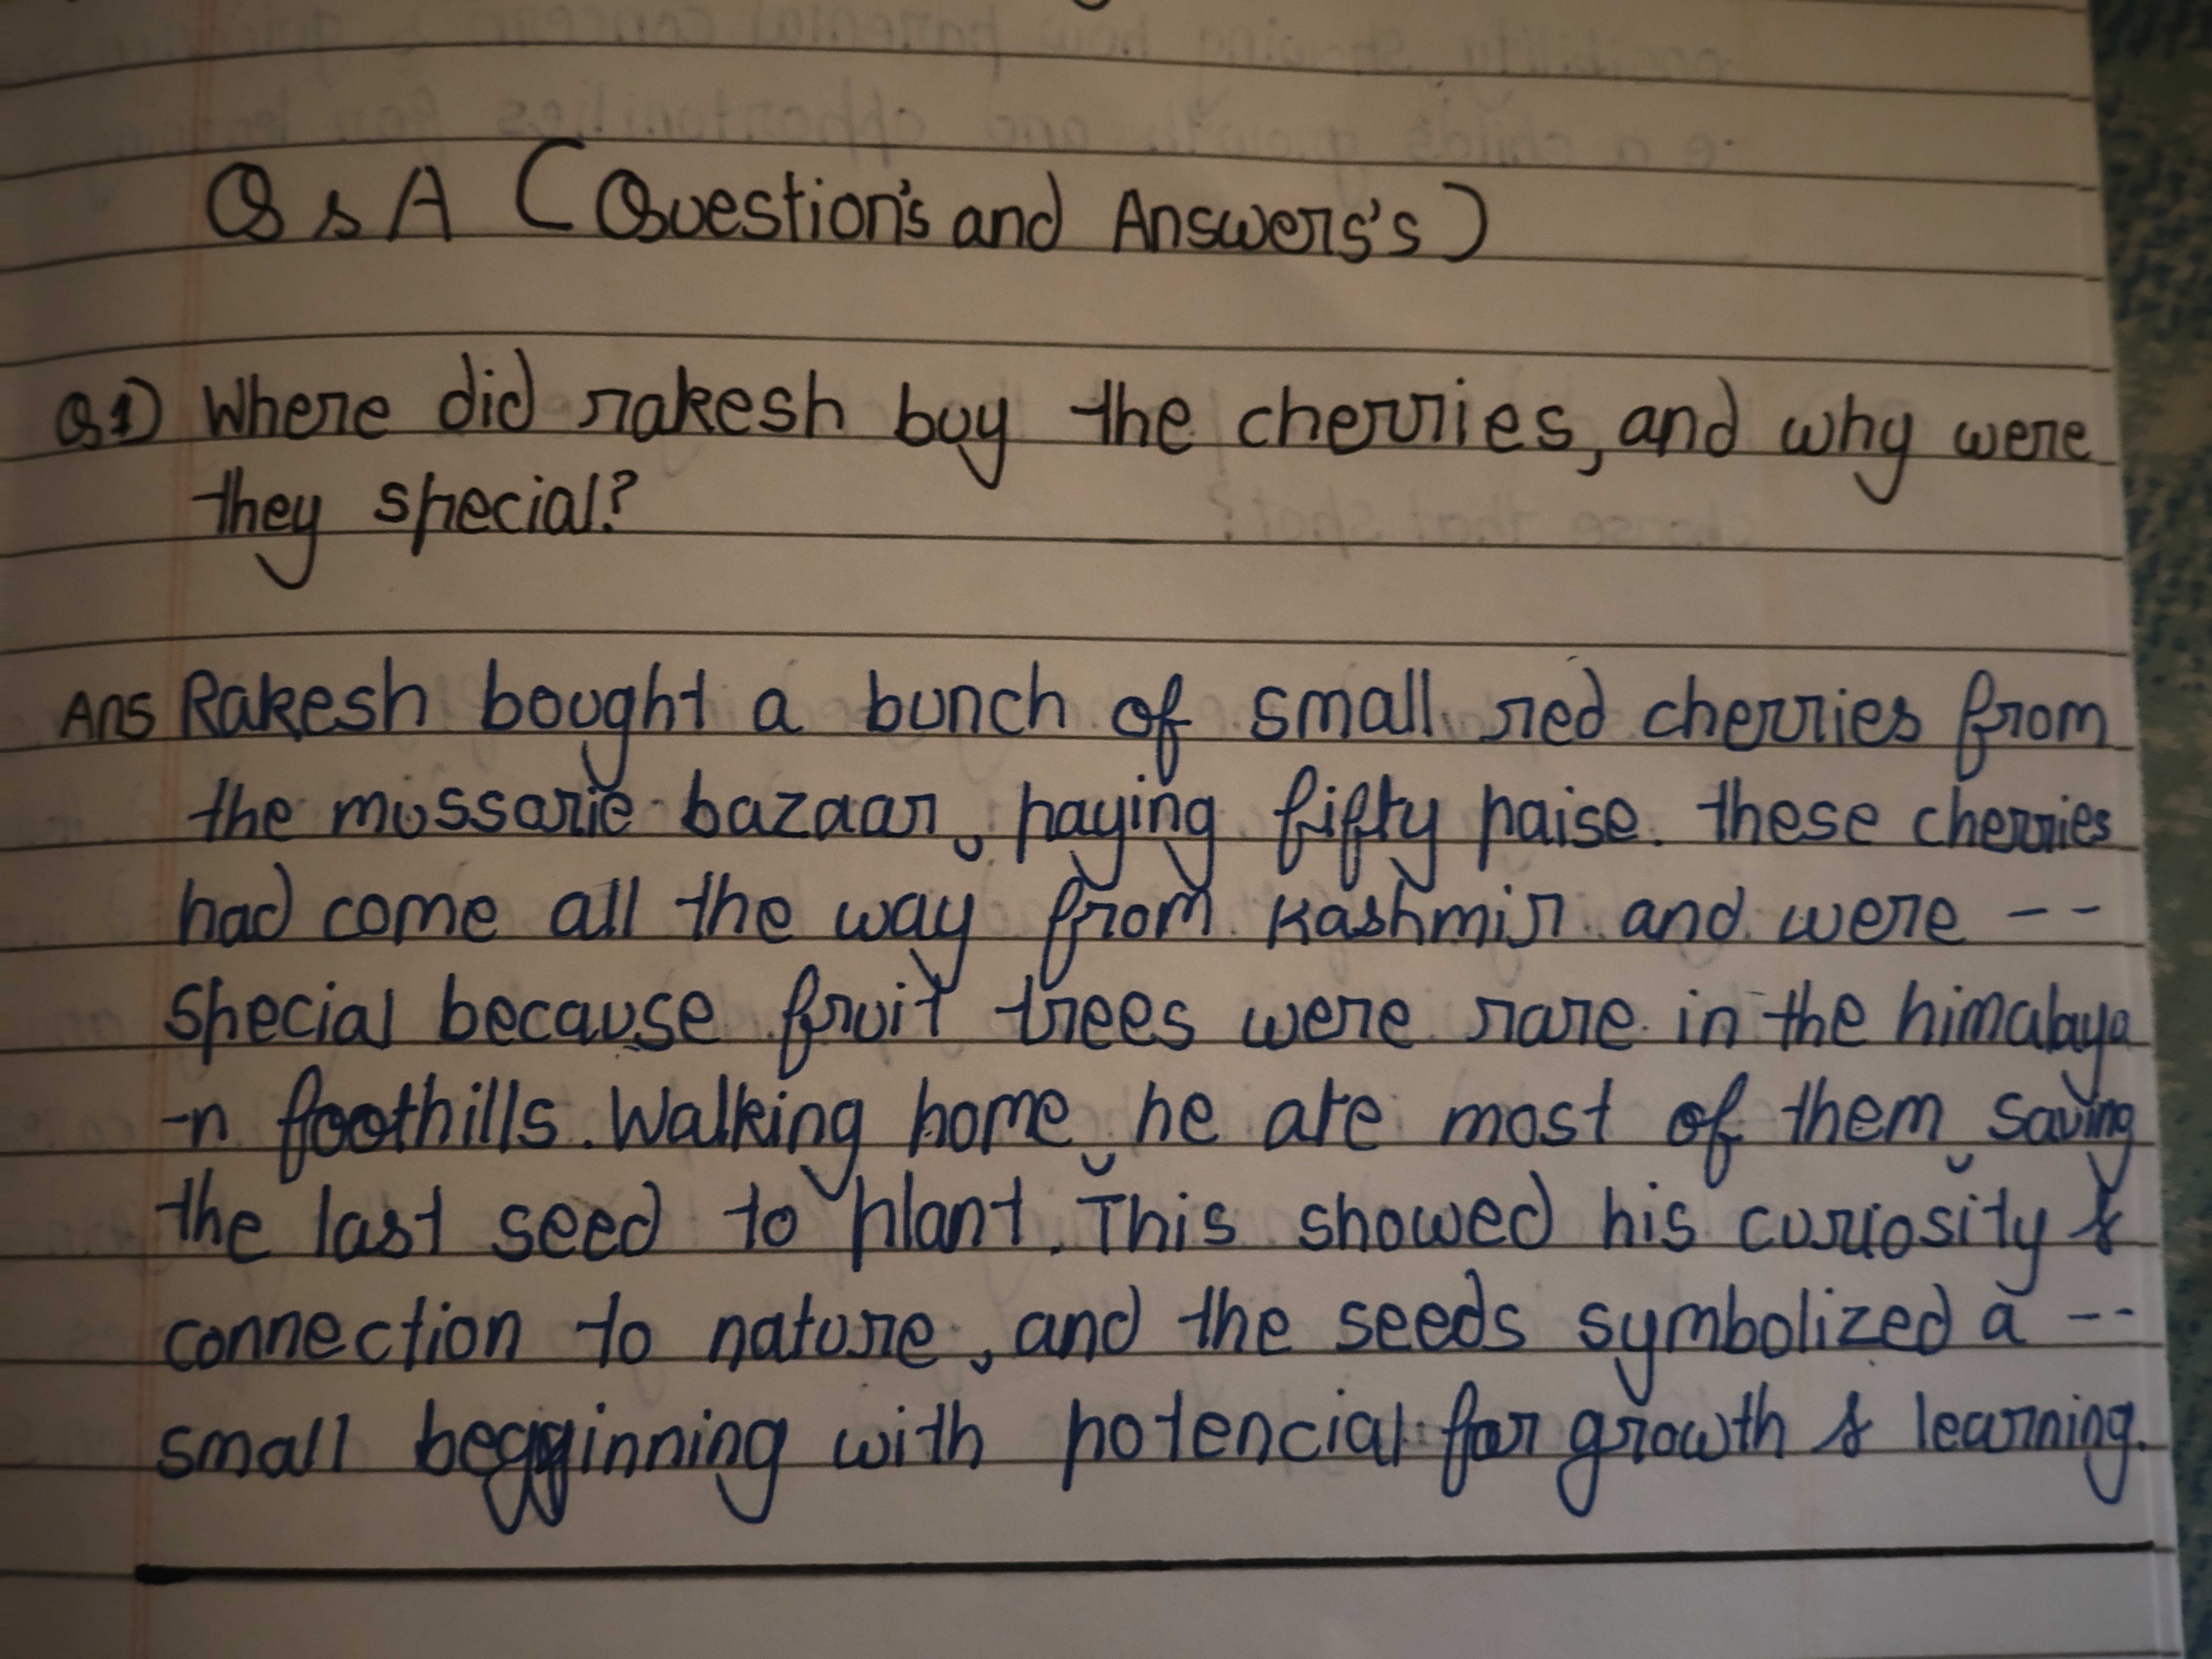 Q & A (Question's and Answers's)
Q1) Where did rakesh buy the cherries, and why were
they special?
Ans Rakesh bought a bunch of small red cherries from
the mussorie bazaar, paying fifty paise. these cherries
had come all the way from Kashmir and were --
special because fruit trees were rare in the himalaya
-n foothills. Walking home, he ate most of them, saving
the last seed to plant. This showed his curiosity &
connection to nature, and the seeds symbolized a --
small begginning with potencial for growth & learning.